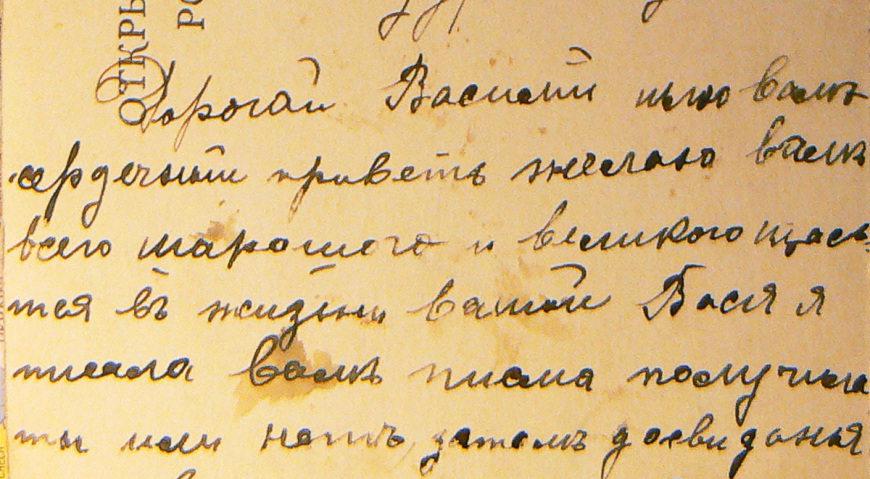 ОТКРЫ
РО
Дорогай Василий шлю вамъ
сердечный приветъ желаю вамъ
всего харошого и великого щась
тея въ жизни вашей Вася я
писала вамъ писма получила
ты или нетъ, затемъ досвиданья